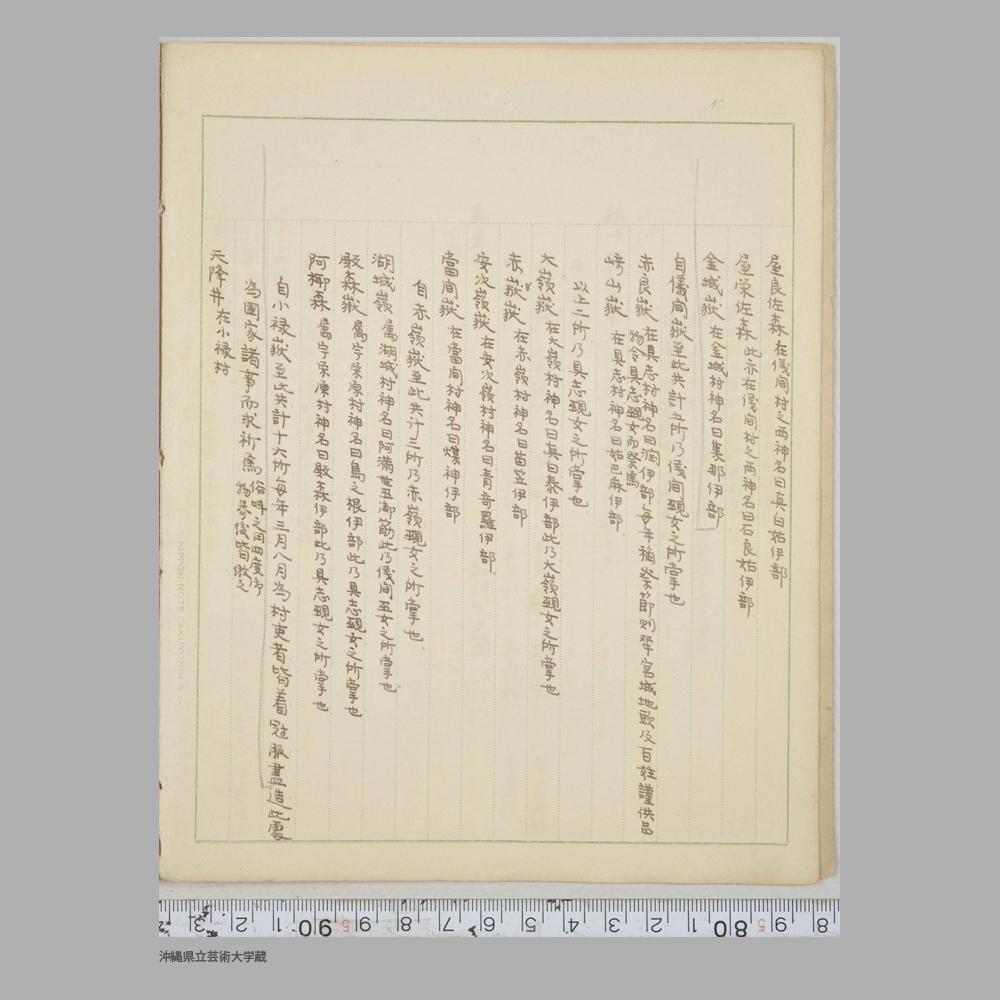 屋良佐森 在儀間村之西神名曰真白姑伊部
屋栄佐森 此亦在儀間村之西神名曰石良姑伊部
金城嶽 在金城村神名曰集那伊部
自儀間嶽至此共計五所乃儀間覡女之所掌也
赤良嶽 在具志村神名曰 伊部毎年稲祭節則宮城地頭及百姓謹供品
物令具志覡女而祭焉
嵜山嶽 在具志村神名曰姑巴麻伊部
以上二所乃具志覡女之所掌也
大嶺嶽 在大嶺村神名曰真白泰伊部此乃大嶺覡女之所掌也
赤嶽嶽 在赤嶺村神名曰苗笠伊部
安次嶺嶽 在安次嶺村神名曰青奇羅伊部
當間嶽 在當間村神名曰煤神伊部
自赤嶺嶽至此共計三所乃赤嶺覡女之所掌也
湖城嶺 属湖城村神名曰阿満世丑御筋此乃儀間巫女之所掌也
殿森嶽 属宇栄原村神名曰島之根伊部此乃具志覡女之所掌也
阿椰森 属宇栄原村神名曰殿森伊部此乃具志覡女之所掌也
自小禄嶽至此共計十六所毎年三月八月為村吏者皆着冠服盡造此處
為國家諸事而求祈焉 俗呼之曰四度御
物参後皆倣之
天降井 在小禄村
NIPPON NOTE GAKUYOHIN
3 2 1 90 5 9 8 7 6 5 4 3 2 1 80 5 9 8
沖縄県立芸術大学蔵